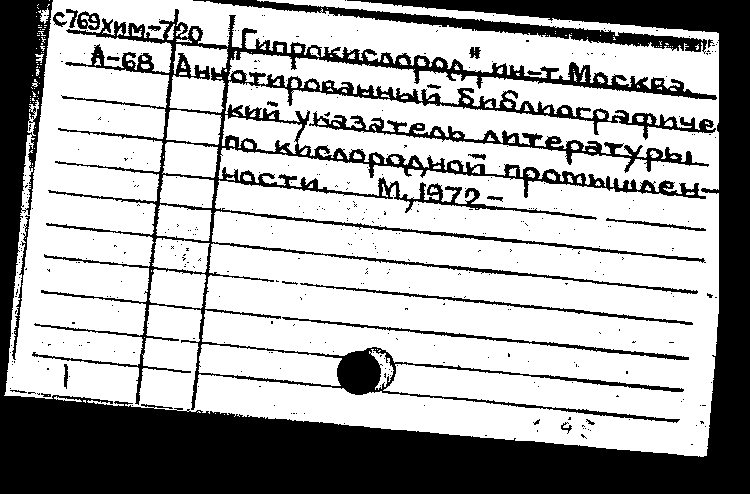 с769хим.-720
"Гипрокислород", ин-т. Москва.
А-68 Аннотированный библиографиче
кий указатель литературы
по кислородной промышлен-
ности. М., 1972-